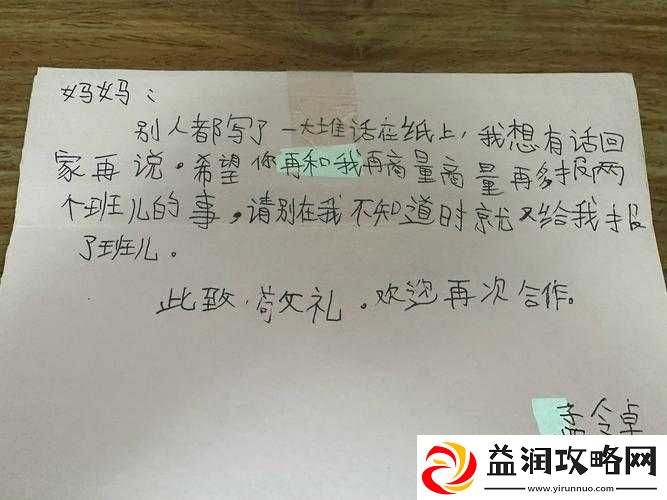 妈妈：
别人都写了一大堆话在纸上，我想有话回
家再说。希望你再和我再商量商量再多报两
个班儿的事，请别在我不知道时就又给我报
了班儿。
此致，苟文礼。欢迎再次合作。
孟令卓
益润攻略网
www.yirunnuo.com